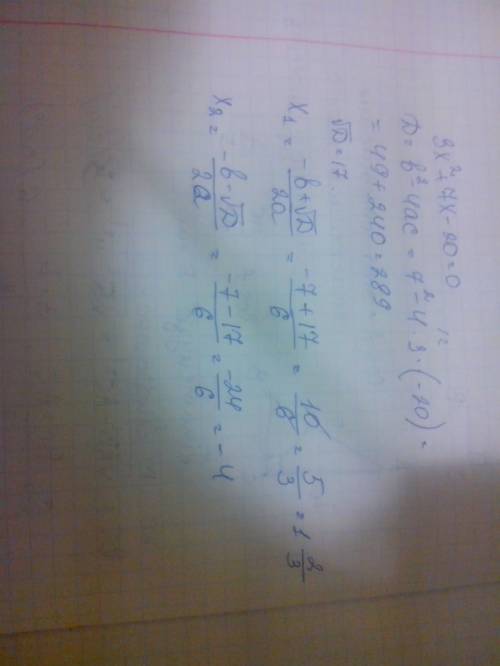 3x² + 7x - 20 = 0
D = b² - 4ac = 7² - 4 · 3 · (-20) =
12
= 49 + 240 = 289.
√D = 17.
x₁ = (-b + √D)/(2a) = (-7 + 17)/6 = 10/6 = 5/3 = 1 2/3
x₂ = (-b - √D)/(2a) = (-7 - 17)/6 = -24/6 = -4